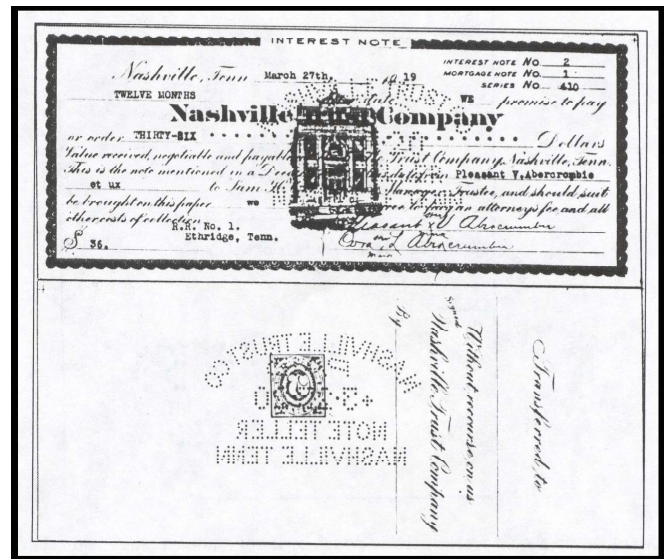 INTEREST NOTE
INTEREST NOTE No. 2
MORTGAGE NOTE No. 1
SERIES No. 410
Nashville, Tenn March 27th. 19
TWELVE MONTHS date WE promise to pay
Nashville Trust Company
or order THIRTY-SIX Dollars
Value received, negotiable and payable Trust Company, Nashville, Tenn.
This is the note mentioned in a Pleasant V. Abercrombie
et ux to Sam H. Manager, Trustee, and should suit
be brought on this paper we agree to pay an attorney's fee and all
other costs of collection
R.R. No. 1.
Ethridge, Tenn.
$ 36.
Pleasant V Abercrombie
Cora L Abercrombie
Transferred to
Without recourse on us
Nashville Trust Company
By
NASHVILLE TRUST CO
NOTE TELLER
NASHVILLE TENN